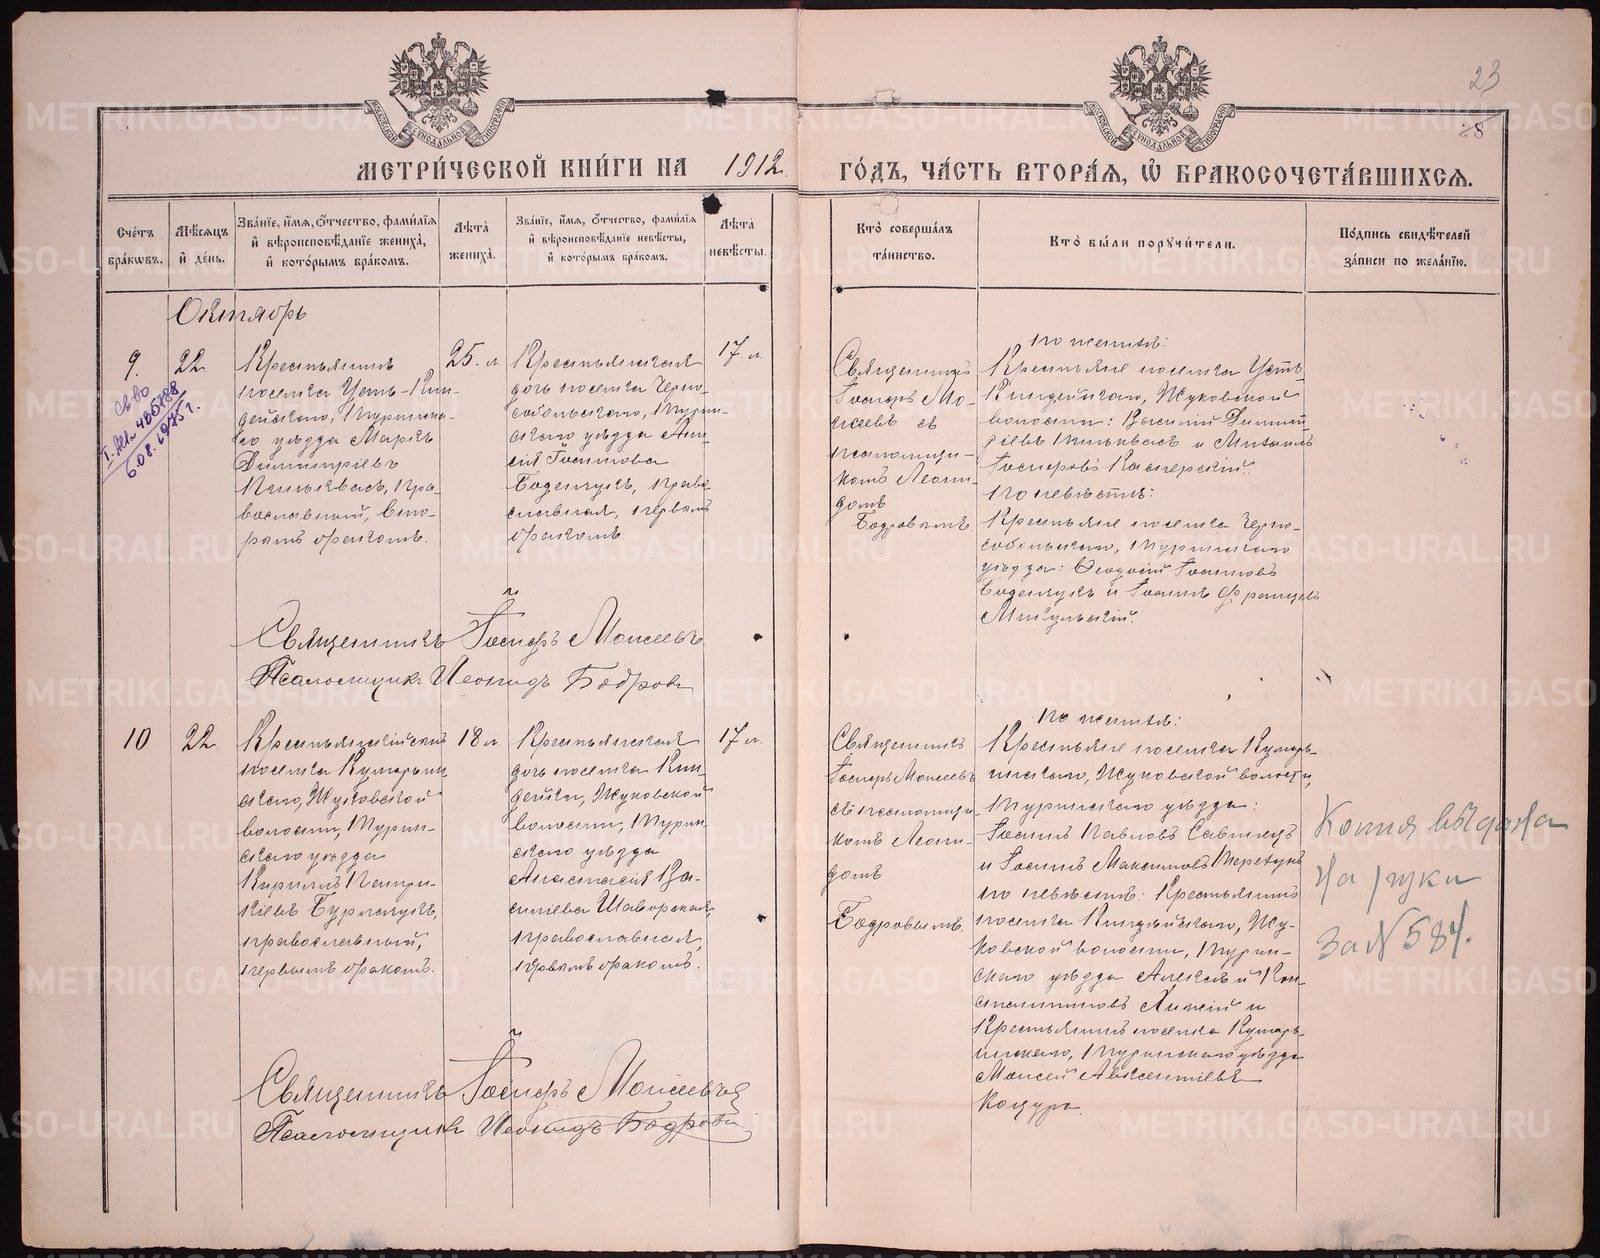 23
МОСКОВСКОЙ СѴНОДАЛЬНОЙ ТИПОГРАФІИ
МОСКОВСКОЙ СѴНОДАЛЬНОЙ ТИПОГРАФІИ
МЕТРИ́ЧЕСКОЙ КНИ́ГИ НА 1912 ГО́ДЪ, ЧА́СТЬ ВТОРА́Я, Ѡ҆ БРАКОСОЧЕТА́ВШИХСЯ.
Сче́тъ
бра́кѡвъ.
Мѣ́сяцъ
и҆ де́нь.
Зва́нїе, и҆́мя, ѻ҆́тчество, фами́лїя
и҆ вѣроисповѣ́данїе жениха̀,
и҆ кото́рымъ бра́комъ.
Лѣ́та
жениха̀.
Зва́нїе, и҆́мя, ѻ҆́тчество, фами́лїя
и҆ вѣроисповѣ́данїе невѣ́сты,
и҆ кото́рымъ бра́комъ.
Лѣ́та
невѣ́сты.
Кто̀ соверша́лъ
та́инство.
Кто̀ бы́ли поручи́тели.
По́дпись свидѣ́телей
за́писи по жела́нїю.
Октябрь
9.
22.
св-во
6.08.1975 г.
Крестьянинъ
поселка Усть-Кин-
дейскаго, Туринска-
го уѣзда Маркъ
Димитріевъ
Пильквасъ, пра-
вославный, вто-
рымъ бракомъ.
25. л.
Крестьянская
дочь поселка Черно-
собольскаго, Турин-
скаго уѣзда Ани-
сія Іоаннова
Боденчукъ, право-
славная, первымъ
бракомъ
17 л.
Священникъ
Іосифъ Мо-
исеевъ съ
псаломщи-
комъ Леони-
домъ
Бодровымъ
По женихѣ:
Крестьяне поселка Усть-
Киндейскаго, Жуковской
волости: Василій Димит-
ріевъ Пильквасъ и Михаилъ
Іосифовъ Касперскій.
По невѣстѣ:
Крестьяне поселка Черно-
собольскаго, Туринскаго
уѣзда: Ѳеодосій Іоанновъ
Боденчукъ и Іоаннъ Францевъ
Микульскій.
Священникъ Іосифъ Моисеевъ
Псаломщикъ Леонидъ Бодровъ
10
22.
Крестьянскій сынъ
поселка Кумарьин-
скаго, Жуковской
волости, Турин-
скаго уѣзда
Кириллъ Патри-
кіевъ Бурлачукъ,
православный,
первымъ бракомъ.
18 л.
Крестьянская
дочь поселка Кин-
дейска, Жуковской
волости, Турин-
скаго уѣзда
Анастасія Ва-
силіева Шаворская,
православная,
первымъ бракомъ.
17 л.
Священникъ
Іосифъ Моисеевъ
съ псаломщи-
комъ Леони-
домъ
Бодровымъ.
По женихѣ:
Крестьяне поселка Кумарь-
инскаго, Жуковской волости,
Туринскаго уѣзда:
Іоаннъ Павловъ Савинецъ
и Іоаннъ Максимовъ Теребунъ
по невѣстѣ: Крестьянинъ
поселка Киндейскаго, Жу-
ковской волости, Турин-
скаго уѣзда Алексѣй Кон-
стантиновъ и
Крестьянинъ поселка Кумарь-
инскаго, Туринскаго уѣзда
Моисей Авксентіевъ
Коцура.
Копія выдана
на руки
за N 584.
Священникъ Іосифъ Моисеевъ
Псаломщикъ Леонидъ Бодровъ
METRIKI.GASO-URAL.RU